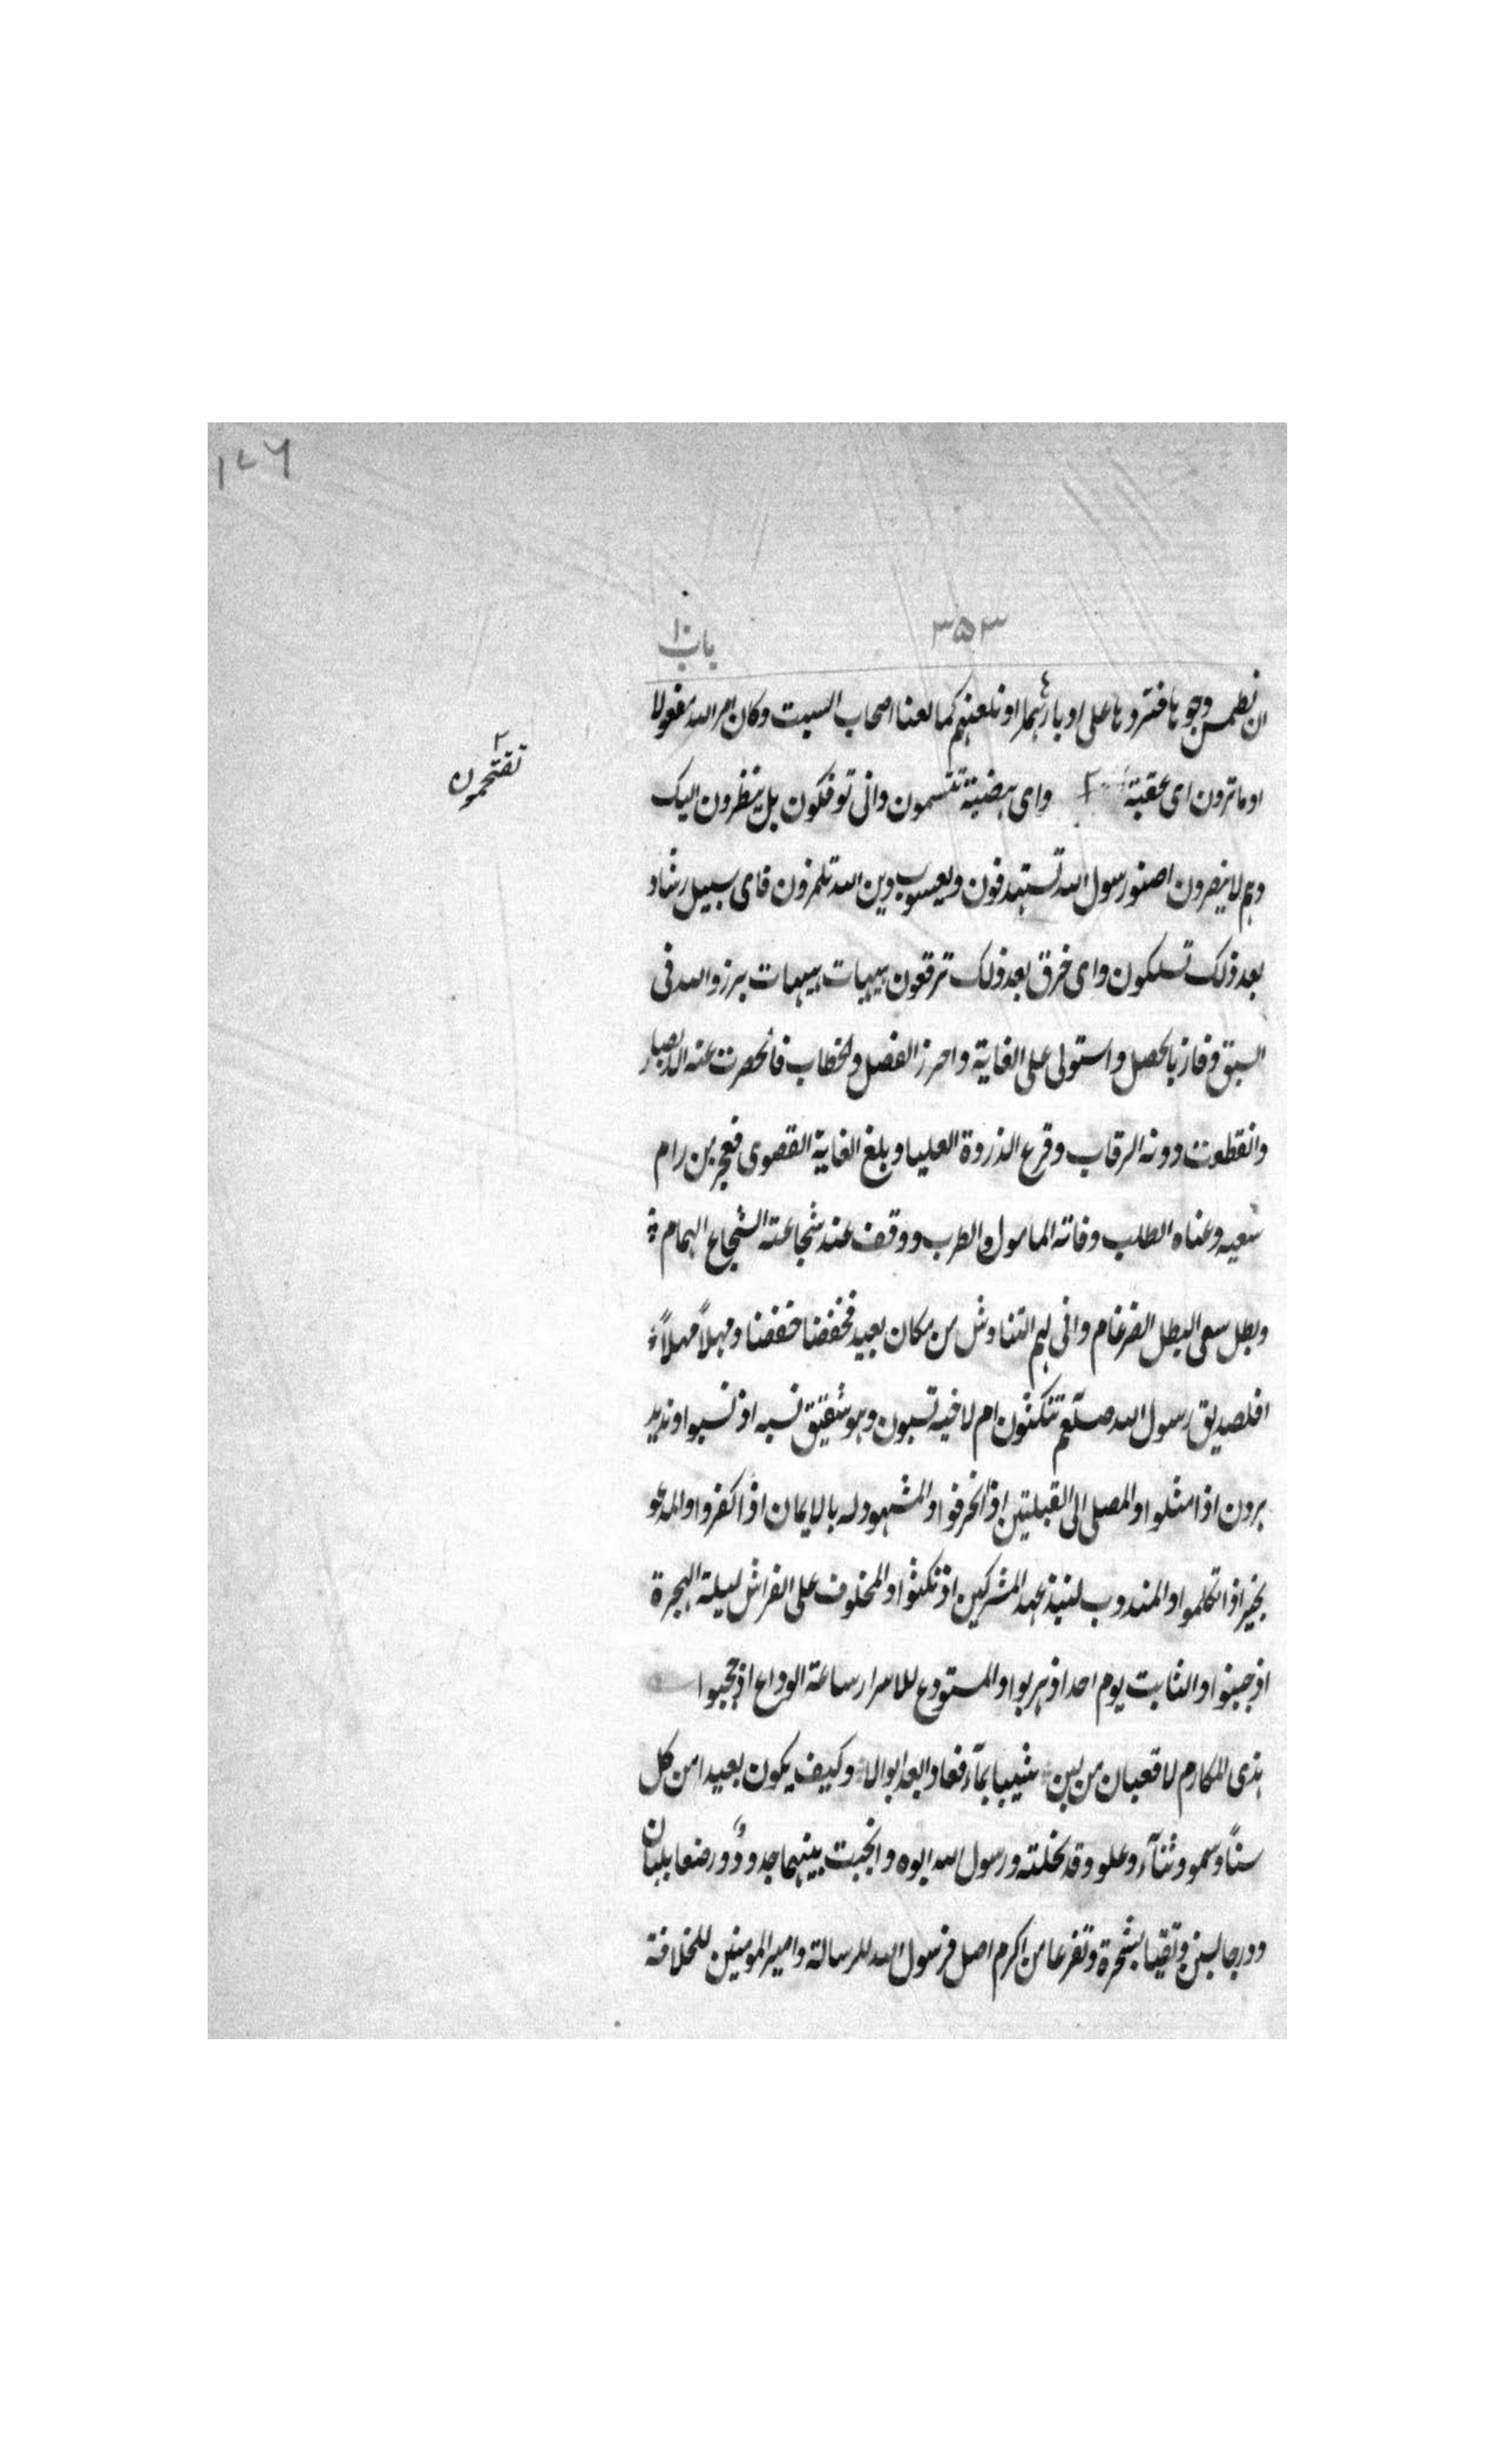 ۱۷۶
۳۵۳
باب ۱۰
ان نطمس وجوها فنردها على ادبارها او نلعنهم كما لعنا اصحاب السبت وكان امر الله مفعولا
او ما ترون اى عقبة ٢ واى بهضبة تتسمون وانى توفكون بل ينظرون اليك
٢ تقتحمون
وهم لا يبصرون اصنو رسول الله تستهدفون ويعسوب دين الله تلمزون فاى سبيل رشاد
بعد ذلك تسلكون واى خرق بعد ذلك ترقعون هيهات هيهات برز والله فى
السبق وفاز بالخصل واستولى على الغاية واحرز الفصل والخطاب فانحصرت عنه الابصار
وانقطعت دونه الرقاب وقرع الذروة العليا وبلغ الغاية القصوى فعجز من رام
سعيه وعناه الطلب وفاته المامول والطرب ووقف عند شجاعته الشجاع الهمام
وبطل سعى البطل الضرغام وانى لهم التناوش من مكان بعيد فخفضا خفضا ومهلاً مهلاً
افلصديق رسول الله صلعم تنكثون ام لاخيه تسبون وهو شقيق نسبه اذ نسبوا ونديد
هرون اذا مثلوا والمصلى الى القبلتين اذ انحرفوا والمشهود له بالايمان اذا كفروا والمدعو
بخيبر اذا نكلموا والمندوب لنبذ عهد المشركين اذ نكثوا والمخلوف على الفراش ليلة الهجرة
اذ جبنوا والثابت يوم احد اذ هربوا والمستودع للاسرار ساعة الوداع اذ حجبوا
هذى المكارم لا قعبان من لبن شيبا بمآء فعادا بعد ابوالا وكيف يكون بعيدا من كل
سناً وسمو وثنآء وعلو وقد نجلته ورسول الله ابوه وانجبت بينهما جدود ورضعا بلبان
ودرجا لبنى وتقيا بشجرة وتفرعا من اكرم اصل فرسول الله للرسالة وامير المومنين للخلافة